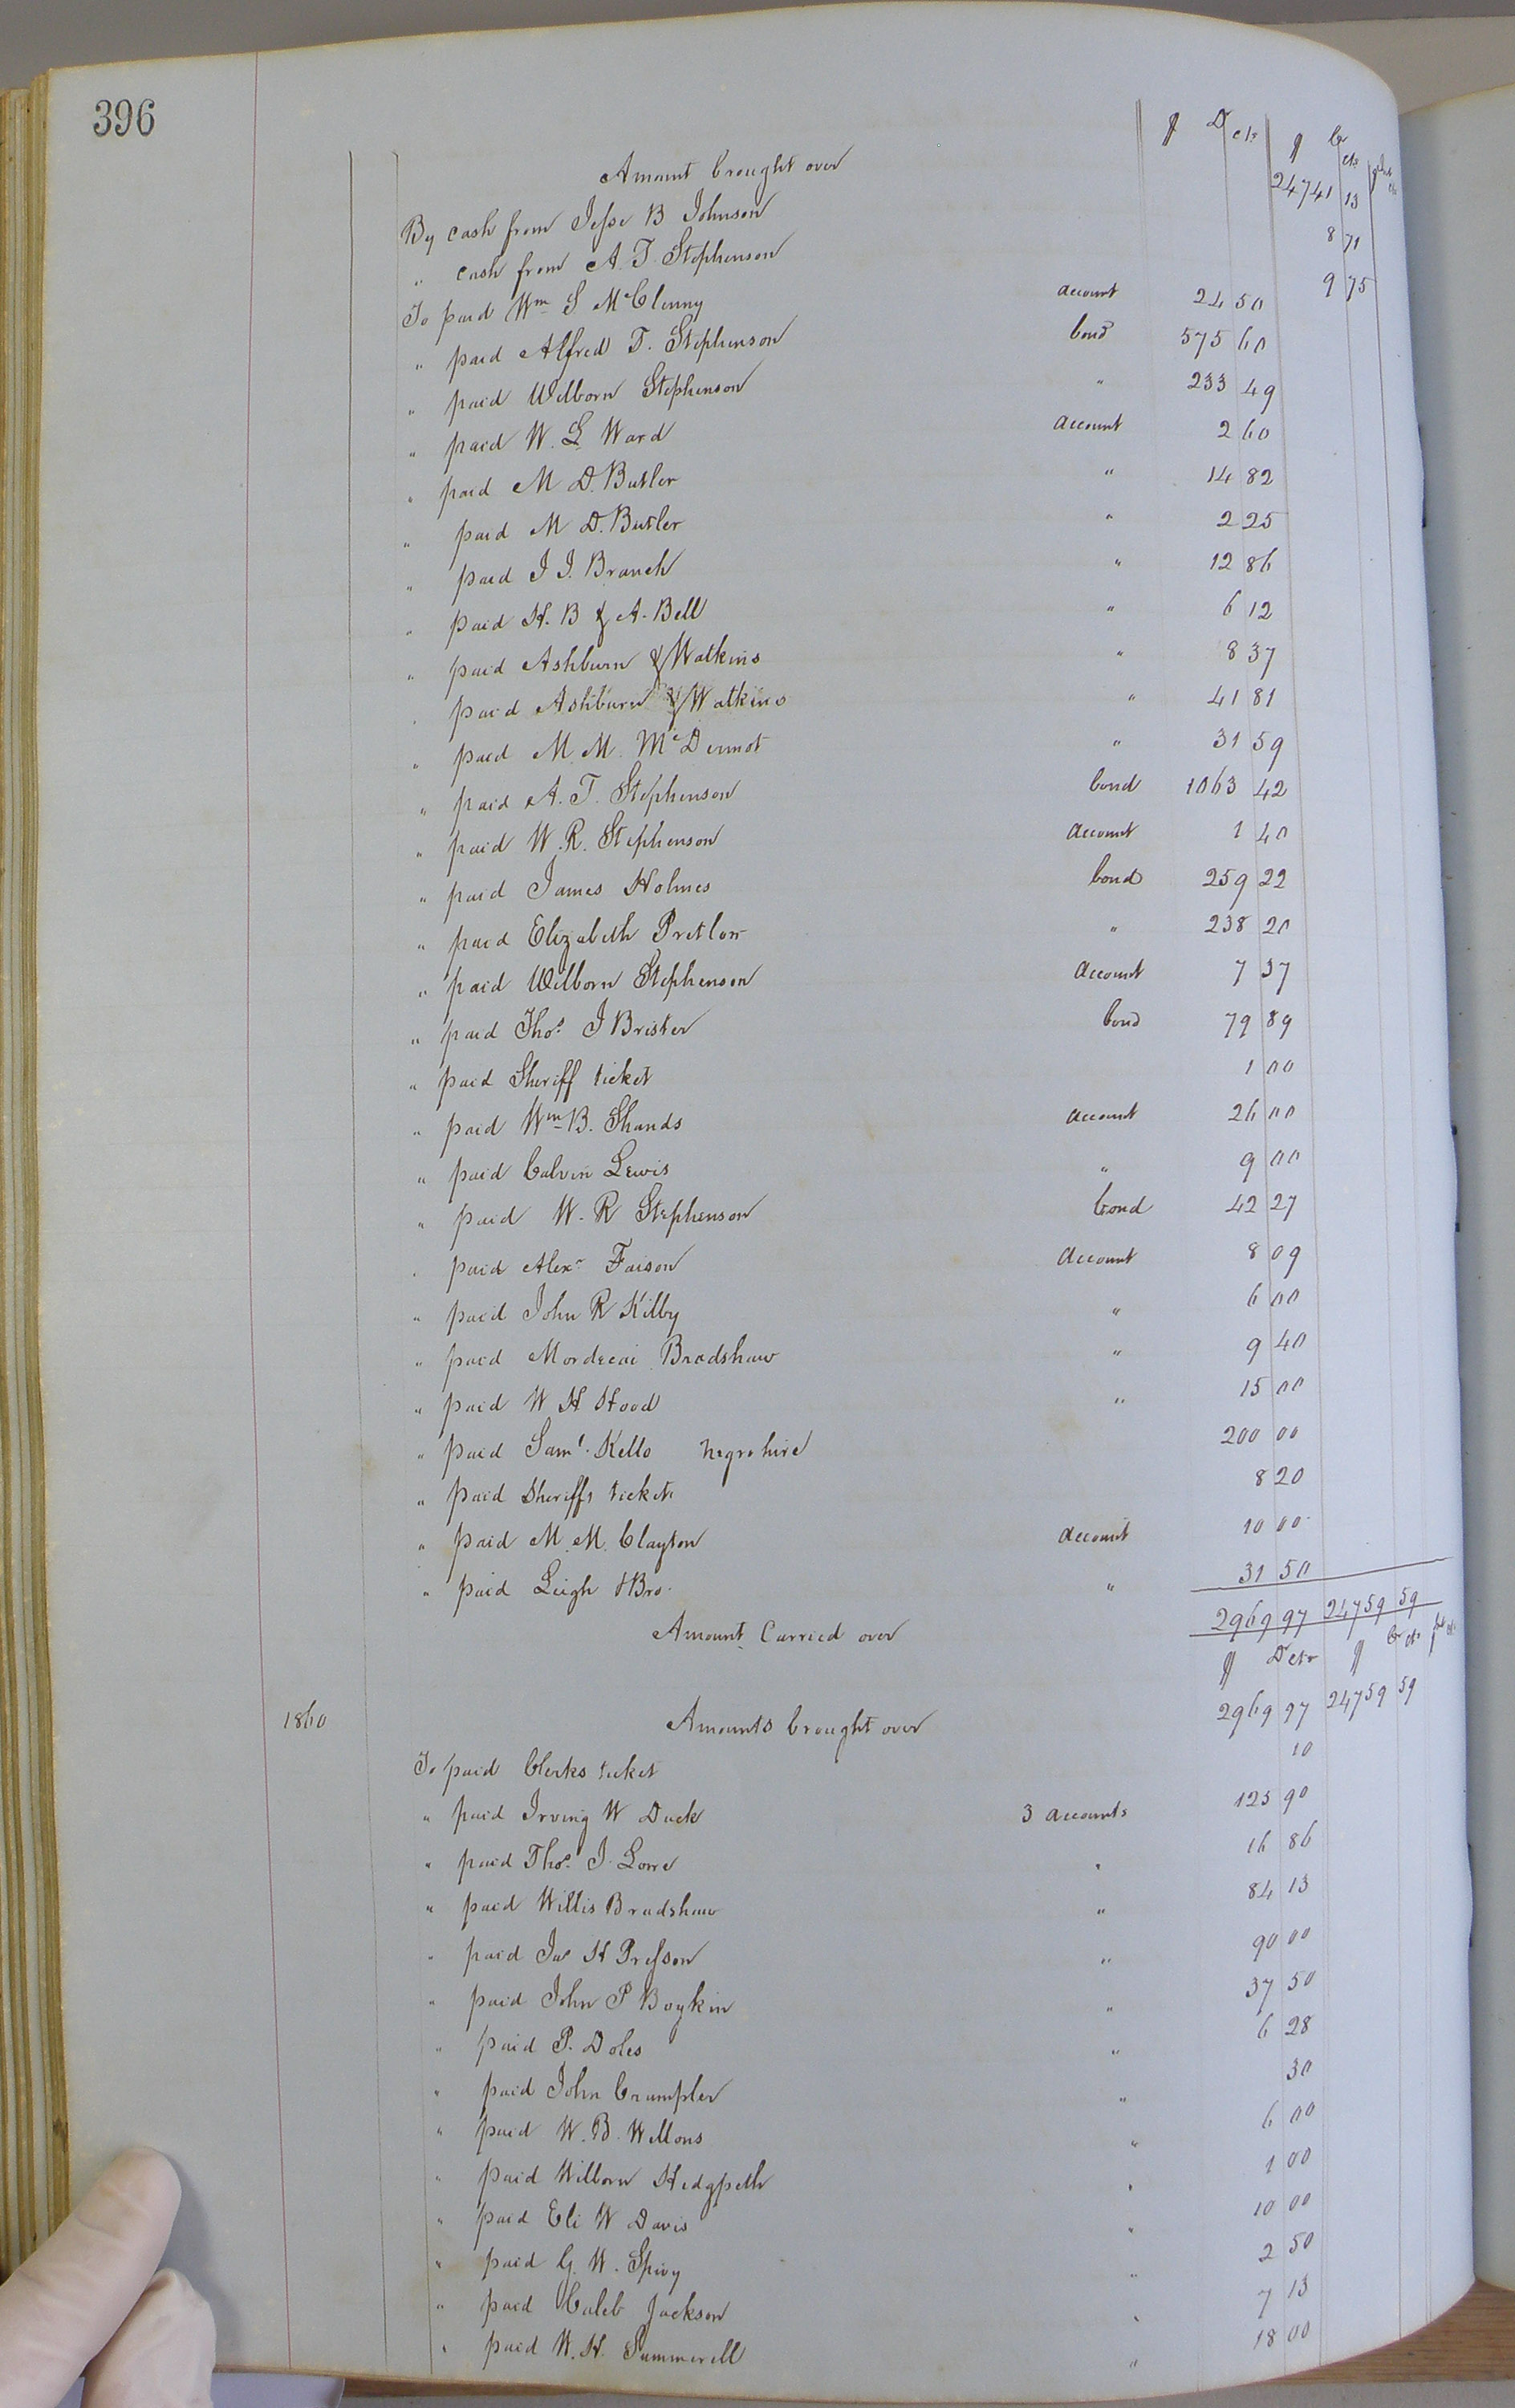 396
$ Dr cts $ Cr cts
Amount brought over 24741 13
By cash from Jesse B Johnson 8 71
" cash from A. T. Stephenson 9 75
To paid Wm S McClenny account 24 50
" paid Alfred T. Stephenson bond 575 60
" paid Wilborn Stephenson " 233 49
" paid W. L Ward account 2 60
" paid M D. Butler " 14 82
" paid M D. Butler " 2 25
" paid J J. Branch " 12 86
" paid H. B & A. Bell " 6 12
" paid Ashburn & Watkins " 8 37
" paid Ashburn & Watkins " 41 81
" paid M. M. McDermot " 31 59
" paid A. T. Stephenson bond 1063 42
" paid W. R. Stephenson account 1 40
" paid James Holmes bond 259 22
" paid Elizabeth Pretlow " 238 20
" paid Wilborn Stephenson account 7 37
" paid Thos J Brister bond 79 89
" paid Sheriff ticket 1 00
" paid Wm B. Shands account 26 00
" paid Calvin Lewis " 9 00
" paid W. R Stephenson bond 42 27
" paid Alexr Faison account 8 09
" paid John R Kilby " 6 00
" paid Mordecai Bradshaw " 9 40
" paid W H Hood " 15 00
" paid Saml. Kello Negro hire 200 00
" paid Sheriffs tickets 8 20
" paid M. M. Clayton account 10 00
" paid Leigh & Bro. " 31 50
Amount Carried over 2969 97 24759 59
$ Dr cts $ Cr cts
1860 Amounts brought over 2969 97 24759 59
To paid Clerks ticket 10
" paid Irving W Duck 3 accounts 123 90
" paid Thos. J. Lowe " 16 86
" paid Willis Bradshaw " 84 13
" paid Jas H Presson " 90 00
" paid John P Boykin " 37 50
" paid P. Doles " 6 28
" paid John Crumpler " 30
" paid W. B. Wellons " 6 00
" paid Wilborn Hedgpeth " 1 00
" paid Eli W Davis " 10 00
" paid G. W. Spivy " 2 50
" paid Caleb Jackson " 7 13
" paid W. H. Summerell " 18 00